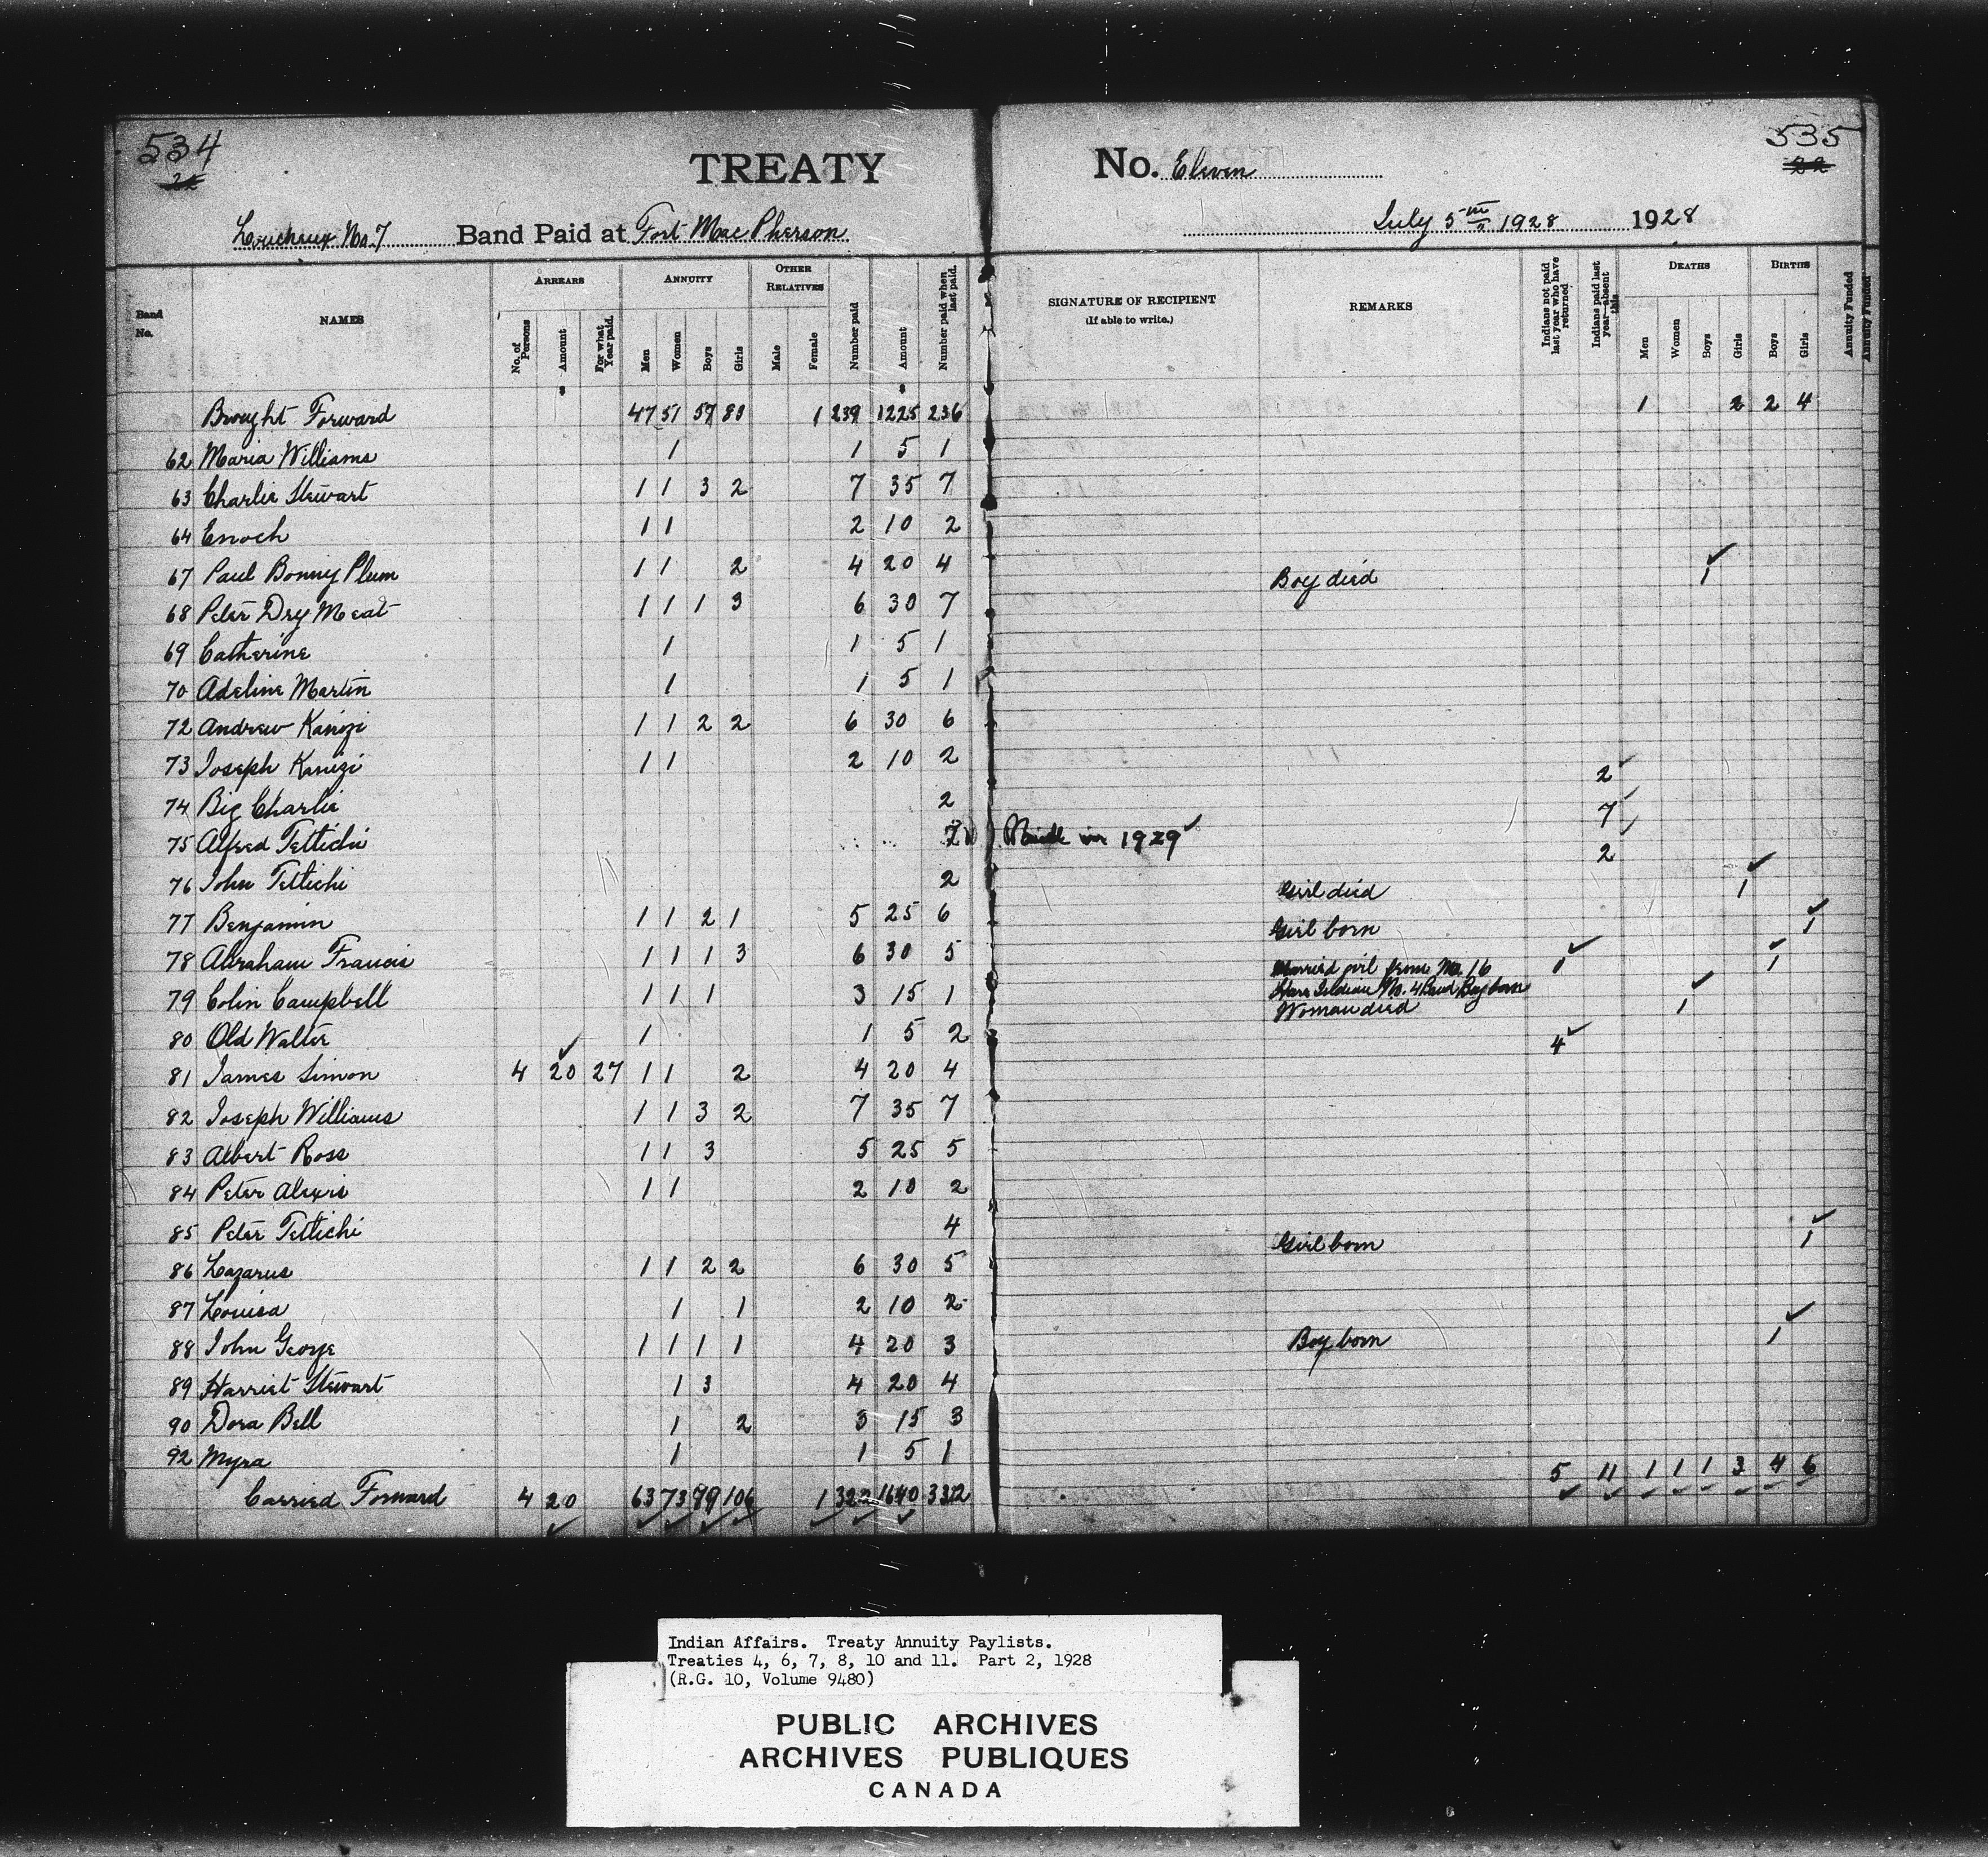 534
535
22
22
TREATY No. Eleven
Loucheux No. 7 Band Paid at Fort MacPherson July 5th 1928 1928
ARREARS ANNUITY OTHER RELATIVES DEATHS BIRTHS
Band No. NAMES No. of Persons Amount For what Year paid. Men Women Boys Girls Male Female Number paid Amount Number paid when last paid. SIGNATURE OF RECIPIENT (If able to write.) REMARKS Indians not paid last year who have returned Indians paid last year—absent this Men Women Boys Girls Boys Girls Annuity Funded Annuity Funded
$ $
Brought Forward 47 51 57 80 1 239 1225 236 1 2 2 4
62 Maria Williams 1 1 5 1
63 Charlie Stewart 1 1 3 2 7 35 7
64 Enoch 1 1 2 10 2
67 Paul Bonny Plum 1 1 2 4 20 4
68 Peter Dry Meat 1 1 1 3 6 30 7 Boy died 1 ✓
69 Catherine 1 1 5 1
70 Adeline Martin 1 1 5 1
72 Andrew Kunizi 1 1 2 2 6 30 6
73 Joseph Kunizi 1 1 2 10 2
74 Big Charlie 2 2 ✓
75 Alfred Tettichi 7 in 1929 ✓ 7 ✓
76 John Tettichi 2 2 ✓
77 Benjamin 1 1 2 1 5 25 6 Girl died 1 ✓
78 Abraham Francis 1 1 1 3 6 30 5 Girl born 1 ✓
79 Colin Campbell 1 1 1 3 15 1 Married girl from No. 16 1 ✓ 1 ✓
Hare Indian No. 4 Band Boy born
80 Old Walter 1 1 5 2 Woman died 1 ✓
81 James Simon 4 20 ✓ 27 1 1 2 4 20 4 4 ✓
82 Joseph Williams 1 1 3 2 7 35 7
83 Albert Ross 1 1 3 5 25 5
84 Peter Alexis 1 1 2 10 2
85 Peter Tettichi 4
86 Lazarus 1 1 2 2 6 30 5 Girl born 1 ✓
87 Louisa 1 1 2 10 2
88 John George 1 1 1 1 4 20 3 Boy born 1 ✓
89 Harriet Stewart 1 3 4 20 4
90 Dora Bell 1 2 3 15 3
92 Myra 1 1 5 1
Carried Forward 4 20 63 73 79 106 1 322 1640 332 5 11 1 1 1 3 4 6
Indian Affairs. Treaty Annuity Paylists.
Treaties 4, 6, 7, 8, 10 and 11. Part 2, 1928
(R.G. 10, Volume 9480)
PUBLIC ARCHIVES
ARCHIVES PUBLIQUES
CANADA